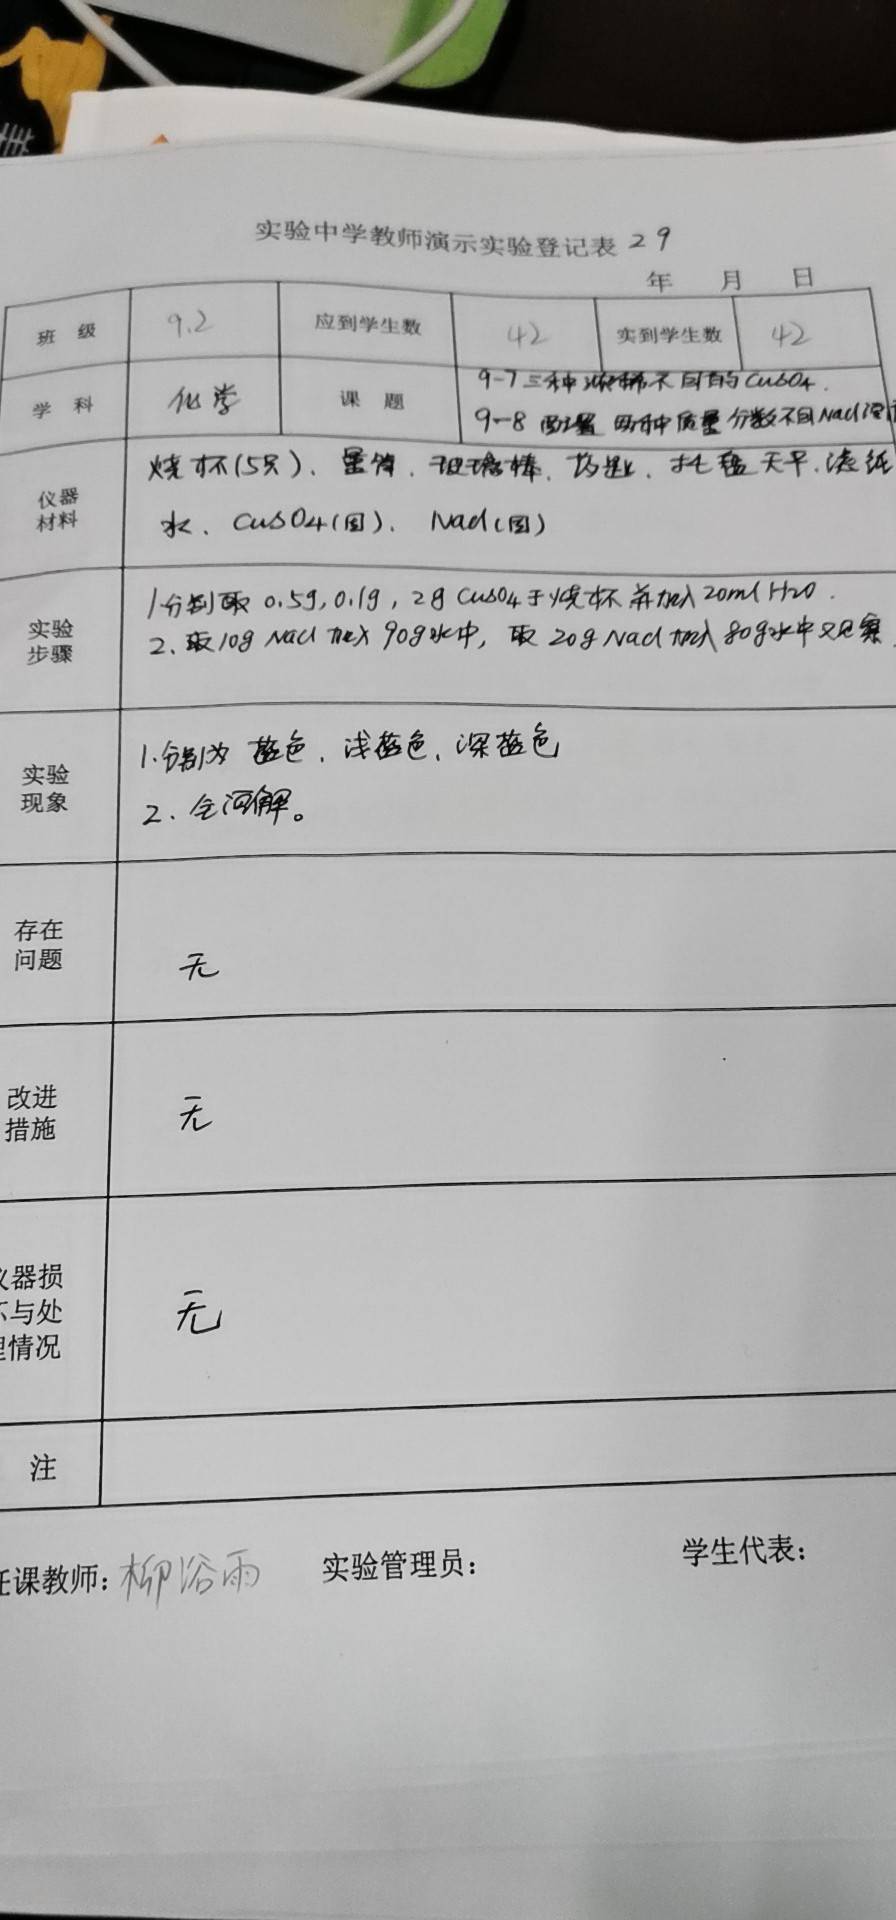 实验中学教师演示实验登记表 29
年 月 日
班 级 9.2 应到学生数 42 实到学生数 42
学 科 化学 课 题 9-7 三种浓稀不同的CuSO4.
9-8 配置 两种质量分数不同NaCl溶
仪器
材料
烧杯(5只)、量筒、玻璃棒、药匙、托盘天平、滤纸
水、CuSO4(固)、NaCl(固)
实验
步骤
1分别取 0.5g, 0.1g, 2g CuSO4于烧杯并加入20ml H2O.
2、取10g NaCl 加入 90g水中, 取 20g NaCl 加入 80g水中
实验
现象
1.分别为 蓝色、浅蓝色、深蓝色
2、全溶解。
存在
问题
无
改进
措施
无
仪器损
坏与处
理情况
无
注
任课教师: 柳浴雨 实验管理员: 学生代表: